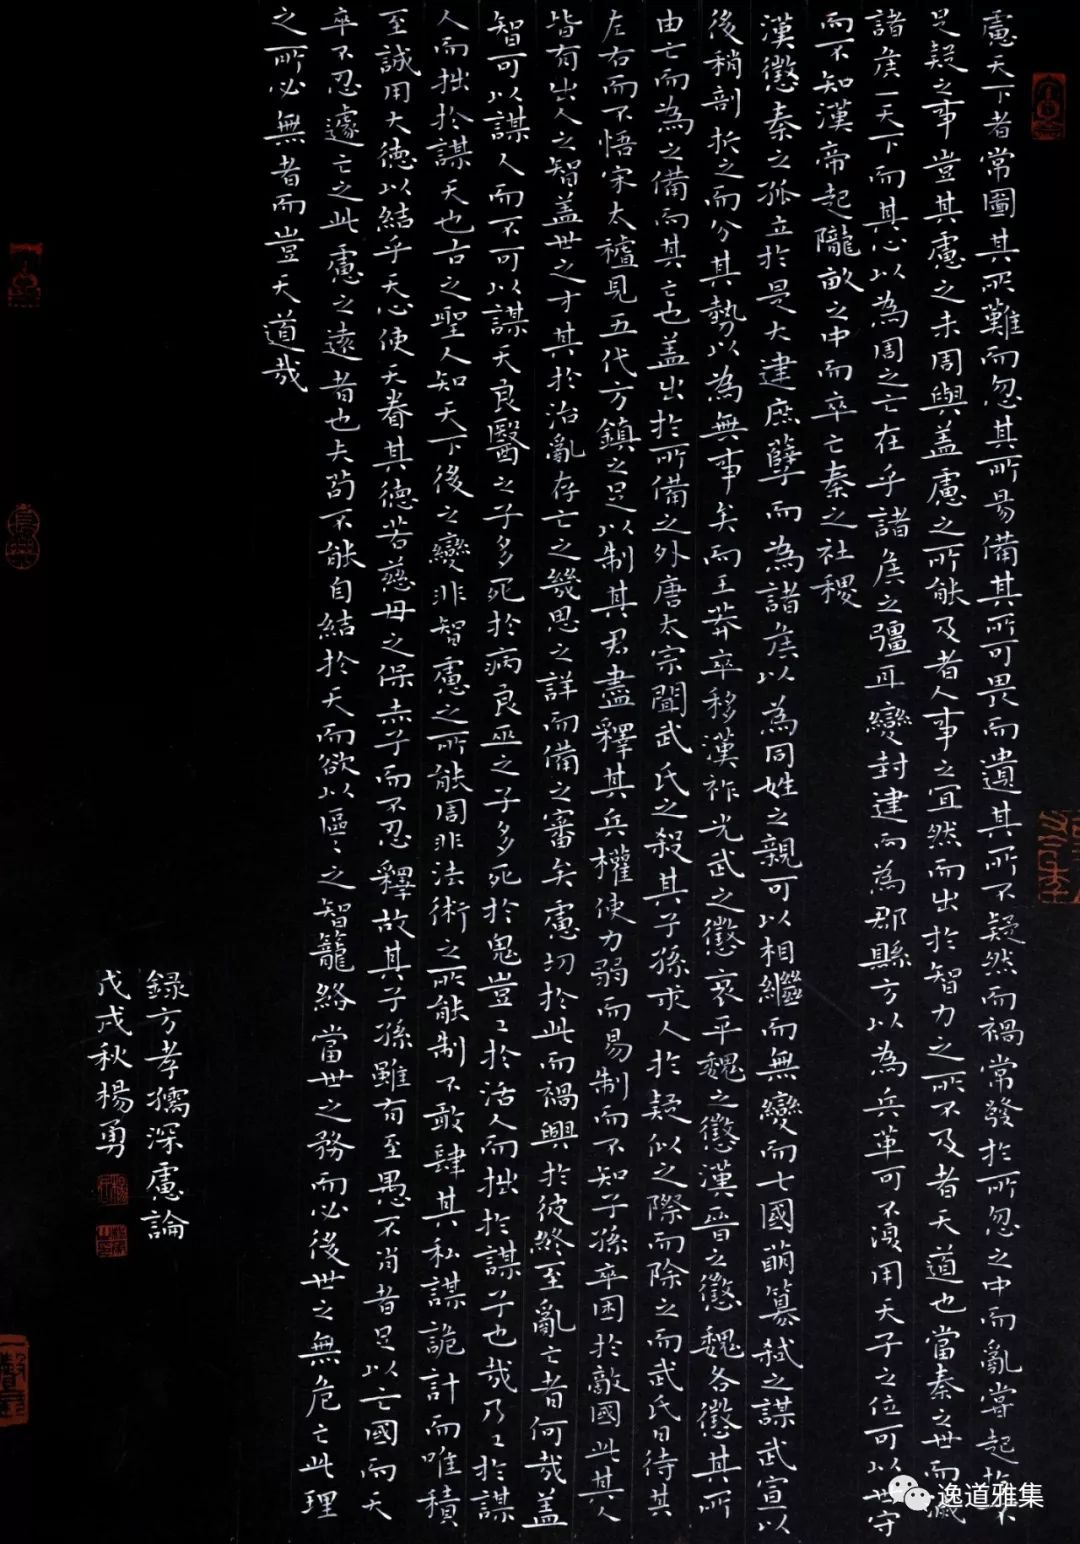 慮天下者常圖其所難而忽其所易備其所可畏而遺其所不疑然而禍常發於所忽之中而亂常起於不
足疑之事豈其慮之未周與蓋慮之所能及者人事之宜然而出於智力之所不及者天道也當秦之世而滅
諸侯一天下而其心以為周之亡在乎諸侯之彊耳變封建而為郡縣方以為兵革可不復用天子之位可以世守
而不知漢帝起隴畝之中而卒亡秦之社稷
漢懲秦之孤立於是大建庶孽而為諸侯以為同姓之親可以相繼而無變而七國萌篡弒之謀武宣以
後稍剖析之而分其勢以為無事矣而王莽卒移漢祚光武之懲哀平魏之懲漢晉之懲魏各懲其所
由亡而為之備而其亡也蓋出於所備之外唐太宗聞武氏之殺其子孫求人於疑似之際而除之而武氏日待其
左右而不悟宋太祖見五代方鎮之足以制其君盡釋其兵權使力弱而易制而不知子孫卒困於敵國此其人
皆有出人之智蓋世之才其於治亂存亡之幾思之詳而備之審矣慮切於此而禍興於彼終至亂亡者何哉蓋
智可以謀人而不可以謀天良醫之子多死於病良巫之子多死於鬼豈〻於活人而拙於謀子也哉乃〻於謀
人而拙於謀天也古之聖人知天下後之變非智慮之所能周非法術之所能制不敢肆其私謀詭計而唯積
至誠用大德以結乎天心使天眷其德若慈母之保赤子而不忍釋故其子孫雖有至愚不肖者足以亡國而天
卒不忍遽亡之此慮之遠者也夫苟不能自結於天而欲以區〻之智籠絡當世之務而必後世之無危亡此理
之所必無者而豈天道哉
錄方孝孺深慮論
戊戌秋楊勇
逸道雅集